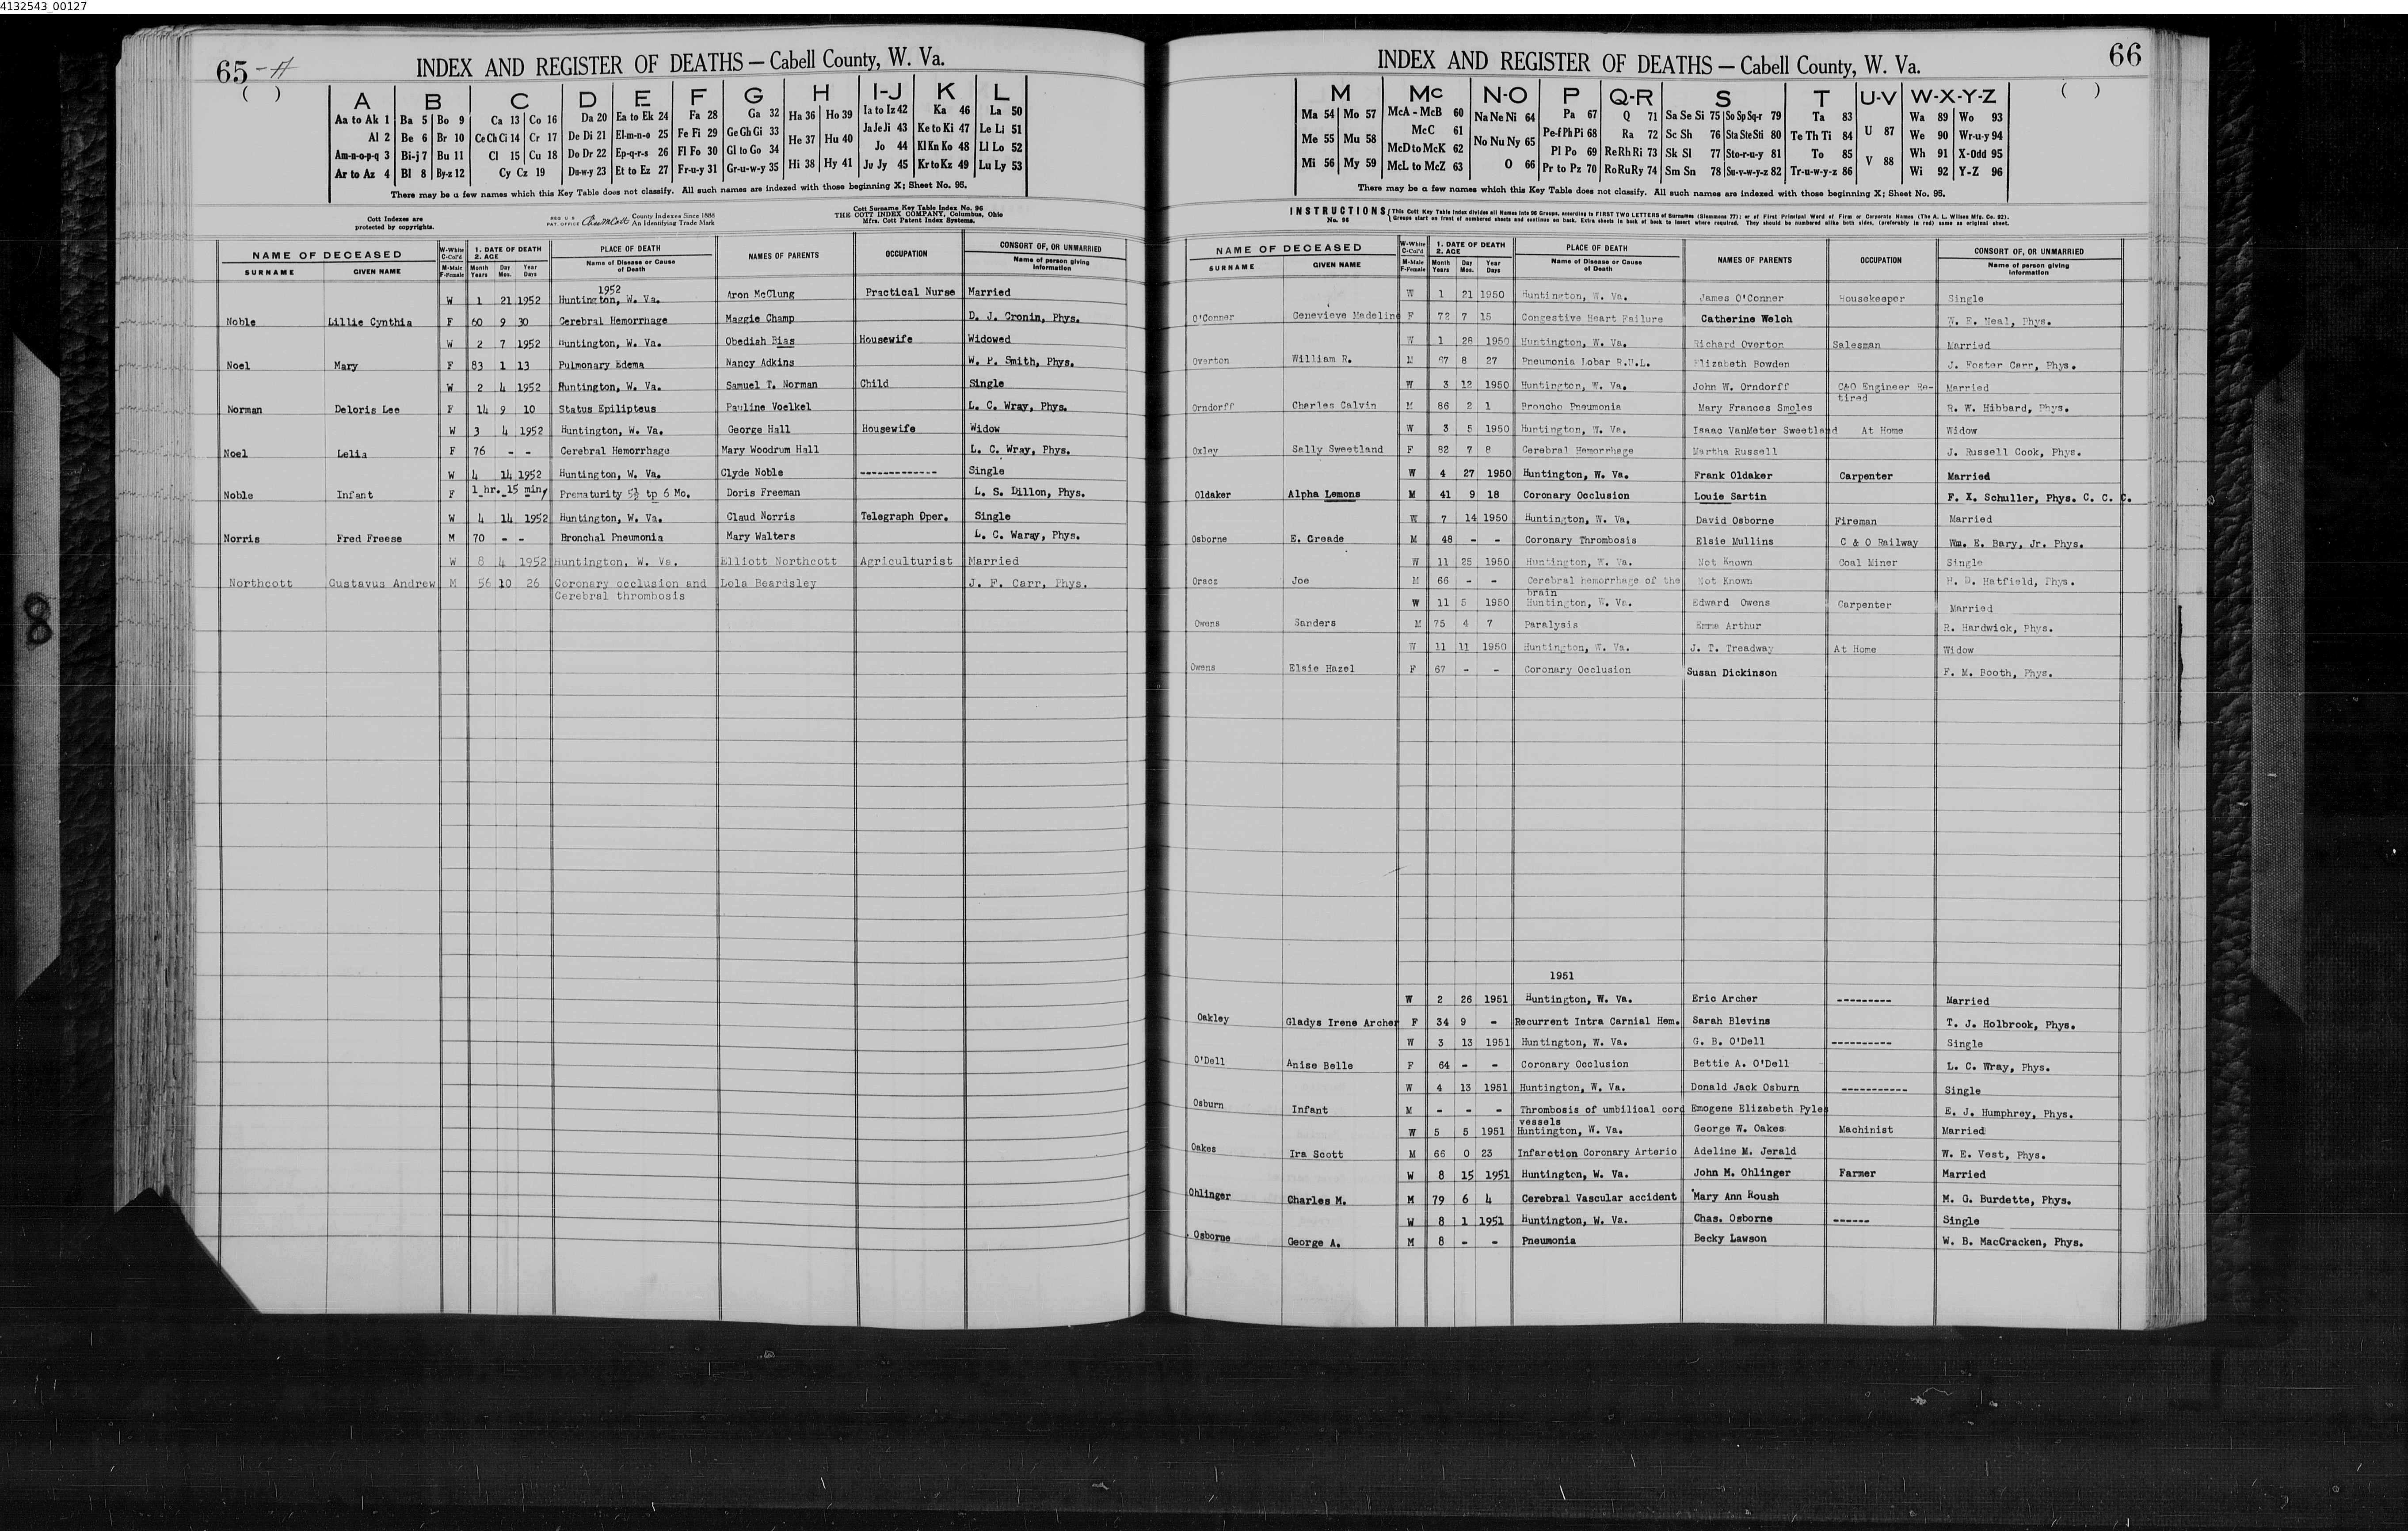 4132543_00127
65-A
( )
INDEX AND REGISTER OF DEATHS — Cabell County, W. Va.
A B C D E F G H I-J K L
Aa to Ak 1 Ba 5 Bo 9 Ca 13 Co 16 Da 20 Ea to Ek 24 Fa 28 Ga 32 Ha 36 Ho 39 Ia to Iz 42 Ka 46 La 50
Al 2 Be 6 Br 10 Ce Ch Ci 14 Cr 17 De Di 21 El-m-n-o 25 Fe Fi 29 Ge Gh Gi 33 He 37 Hu 40 Ja Je Ji 43 Ke to Ki 47 Le Li 51
Am-n-o-p-q 3 Bi-j 7 Bu 11 Cl 15 Cu 18 Do Dr 22 Ep-q-r-s 26 Fl Fo 30 Gl to Go 34 Jo 44 Kl Kn Ko 48 Ll Lo 52
Ar to Az 4 Bl 8 By-z 12 Cy Cz 19 Du-w-y 23 Et to Ez 27 Fr-u-y 31 Gr-u-w-y 35 Hi 38 Hy 41 Ju Jy 45 Kr to Kz 49 Lu Ly 53
There may be a few names which this Key Table does not classify. All such names are indexed with those beginning X; Sheet No. 95.
Cott Indexes are protected by copyrights.
REG. U.S. PAT. OFFICE County Indexes Since 1888 An Identifying Trade Mark
Cott Surname Key Table Index No. 96
THE COTT INDEX COMPANY, Columbus, Ohio
Mfrs. Cott Patent Index Systems.
NAME OF DECEASED W-White C-Col'd 1. DATE OF DEATH 2. AGE PLACE OF DEATH NAMES OF PARENTS OCCUPATION CONSORT OF, OR UNMARRIED
SURNAME GIVEN NAME M-Male F-Female Month Years Day Mos. Year Days Name of Disease or Cause of Death Name of person giving information
1952
W 1 21 1952 Huntington, W. Va. Aron McClung Practical Nurse Married
Noble Lillie Cynthia F 60 9 30 Cerebral Hemorrhage Maggie Champ D. J. Cronin, Phys.
W 2 7 1952 Huntington, W. Va. Obediah Bias Housewife Widowed
Noel Mary F 83 1 13 Pulmonary Edema Nancy Adkins W. P. Smith, Phys.
W 2 4 1952 Huntington, W. Va. Samuel T. Norman Child Single
Norman Deloris Lee F 14 9 10 Status Epilipteus Pauline Voelkel L. C. Wray, Phys.
W 3 4 1952 Huntington, W. Va. George Hall Housewife Widow
Noel Lelia F 76 - - Cerebral Hemorrhage Mary Woodrum Hall L. C. Wray, Phys.
W 4 14 1952 Huntington, W. Va. Clyde Noble ------------- Single
Noble Infant F 1 hr. 15 min, Prematurity 5½ tp 6 Mo. Doris Freeman L. S. Dillon, Phys.
W 4 14 1952 Huntington, W. Va. Claud Norris Telegraph Oper. Single
Norris Fred Freese M 70 - - Bronchal Pneumonia Mary Walters L. C. Waray, Phys.
W 8 4 1952 Huntington, W. Va. Elliott Northcott Agriculturist Married
Northcott Gustavus Andrew M 56 10 26 Coronary occlusion and Lola Beardsley J. F. Carr, Phys.
Cerebral thrombosis
8
66
( )
INDEX AND REGISTER OF DEATHS — Cabell County, W. Va.
M Mc N-O P Q-R S T U-V W-X-Y-Z
Ma 54 Mo 57 McA - McB 60 Na Ne Ni 64 Pa 67 Q 71 Sa Se Si 75 So Sp Sq-r 79 Ta 83 U 87 Wa 89 Wo 93
Me 55 Mu 58 McC 61 No Nu Ny 65 Pe-f Ph Pi 68 Ra 72 Sc Sh 76 Sta Ste Sti 80 Te Th Ti 84 We 90 Wr-u-y 94
McD to McK 62 Pl Po 69 Re Rh Ri 73 Sk Sl 77 Sto-r-u-y 81 To 85 V 88 Wh 91 X-Odd 95
Mi 56 My 59 McL to McZ 63 O 66 Pr to Pz 70 Ro Ru Ry 74 Sm Sn 78 Su-v-w-y-z 82 Tr-u-w-y-z 86 Wi 92 Y-Z 96
There may be a few names which this Key Table does not classify. All such names are indexed with those beginning X; Sheet No. 95.
INSTRUCTIONS No. 96 This Cott Key Table Index divides all Names into 96 Groups, according to FIRST TWO LETTERS of Surnames (Slemmons 77); or of First Principal Word of Firm or Corporate Names (The A. L. Wilson Mfg. Co. 92).
Groups start on front of numbered sheets and continue on back. Extra sheets in back of book to insert where required. They should be numbered alike both sides, (preferably in red) same as original sheet.
NAME OF DECEASED W-White C-Col'd 1. DATE OF DEATH 2. AGE PLACE OF DEATH NAMES OF PARENTS OCCUPATION CONSORT OF, OR UNMARRIED
SURNAME GIVEN NAME M-Male F-Female Month Years Day Mos. Year Days Name of Disease or Cause of Death Name of person giving information
W 1 21 1950 Huntington, W. Va. James O'Conner Housekeeper Single
O'Conner Genevieve Madeline F 72 7 15 Congestive Heart Failure Catherine Welch W. E. Neal, Phys.
W 1 28 1950 Huntington, W. Va. Richard Overton Salesman Married
Overton William R. M 67 8 27 Pneumonia Lobar R.U.L. Elizabeth Bowden J. Foster Carr, Phys.
W 3 12 1950 Huntington, W. Va. John W. Orndorff C&O Engineer Re- Married
tired
Orndorff Charles Calvin M 86 2 1 Broncho Pneumonia Mary Frances Smoles R. W. Hibbard, Phys.
W 3 5 1950 Huntington, W. Va. Isaac VanMeter Sweetland At Home Widow
Oxley Sally Sweetland F 82 7 8 Cerebral Hemorrhage Martha Russell J. Russell Cook, Phys.
W 4 27 1950 Huntington, W. Va. Frank Oldaker Carpenter Married
Oldaker Alpha Lemons M 41 9 18 Coronary Occlusion Louie Sartin F. X. Schuller, Phys. C. C. C.
W 7 14 1950 Huntington, W. Va. David Osborne Fireman Married
Osborne E. Creade M 48 - - Coronary Thrombosis Elsie Mullins C & O Railway Wm. E. Bary, Jr. Phys.
W 11 25 1950 Huntington, W. Va. Not Known Coal Miner Single
Oracz Joe M 66 - - Cerebral hemorrhage of the Not Known H. D. Hatfield, Phys.
brain
W 11 5 1950 Huntington, W. Va. Edward Owens Carpenter Married
Owens Sanders M 75 4 7 Paralysis Emma Arthur R. Hardwick, Phys.
W 11 11 1950 Huntington, W. Va. J. T. Treadway At Home Widow
Owens Elsie Hazel F 67 - - Coronary Occlusion Susan Dickinson F. M. Booth, Phys.
1951
W 2 26 1951 Huntington, W. Va. Eric Archer --------- Married
Oakley Gladys Irene Archer F 34 9 - Recurrent Intra Carnial Hem. Sarah Blevins T. J. Holbrook, Phys.
W 3 13 1951 Huntington, W. Va. G. B. O'Dell ---------- Single
O'Dell Anise Belle F 64 - - Coronary Occlusion Bettie A. O'Dell L. C. Wray, Phys.
W 4 13 1951 Huntington, W. Va. Donald Jack Osburn ----------- Single
Osburn Infant M - - - Thrombosis of umbilical cord Emogene Elizabeth Pyles E. J. Humphrey, Phys.
vessels
W 5 5 1951 Huntington, W. Va. George W. Oakes Machinist Married
Oakes Ira Scott M 66 0 23 Infarction Coronary Arterio Adeline M. Jerald W. E. Vest, Phys.
W 8 15 1951 Huntington, W. Va. John M. Ohlinger Farmer Married
Ohlinger Charles M. M 79 6 4 Cerebral Vascular accident Mary Ann Roush M. G. Burdette, Phys.
W 8 1 1951 Huntington, W. Va. Chas. Osborne ------ Single
Osborne George A. M 8 - - Pneumonia Becky Lawson W. B. MacCracken, Phys.